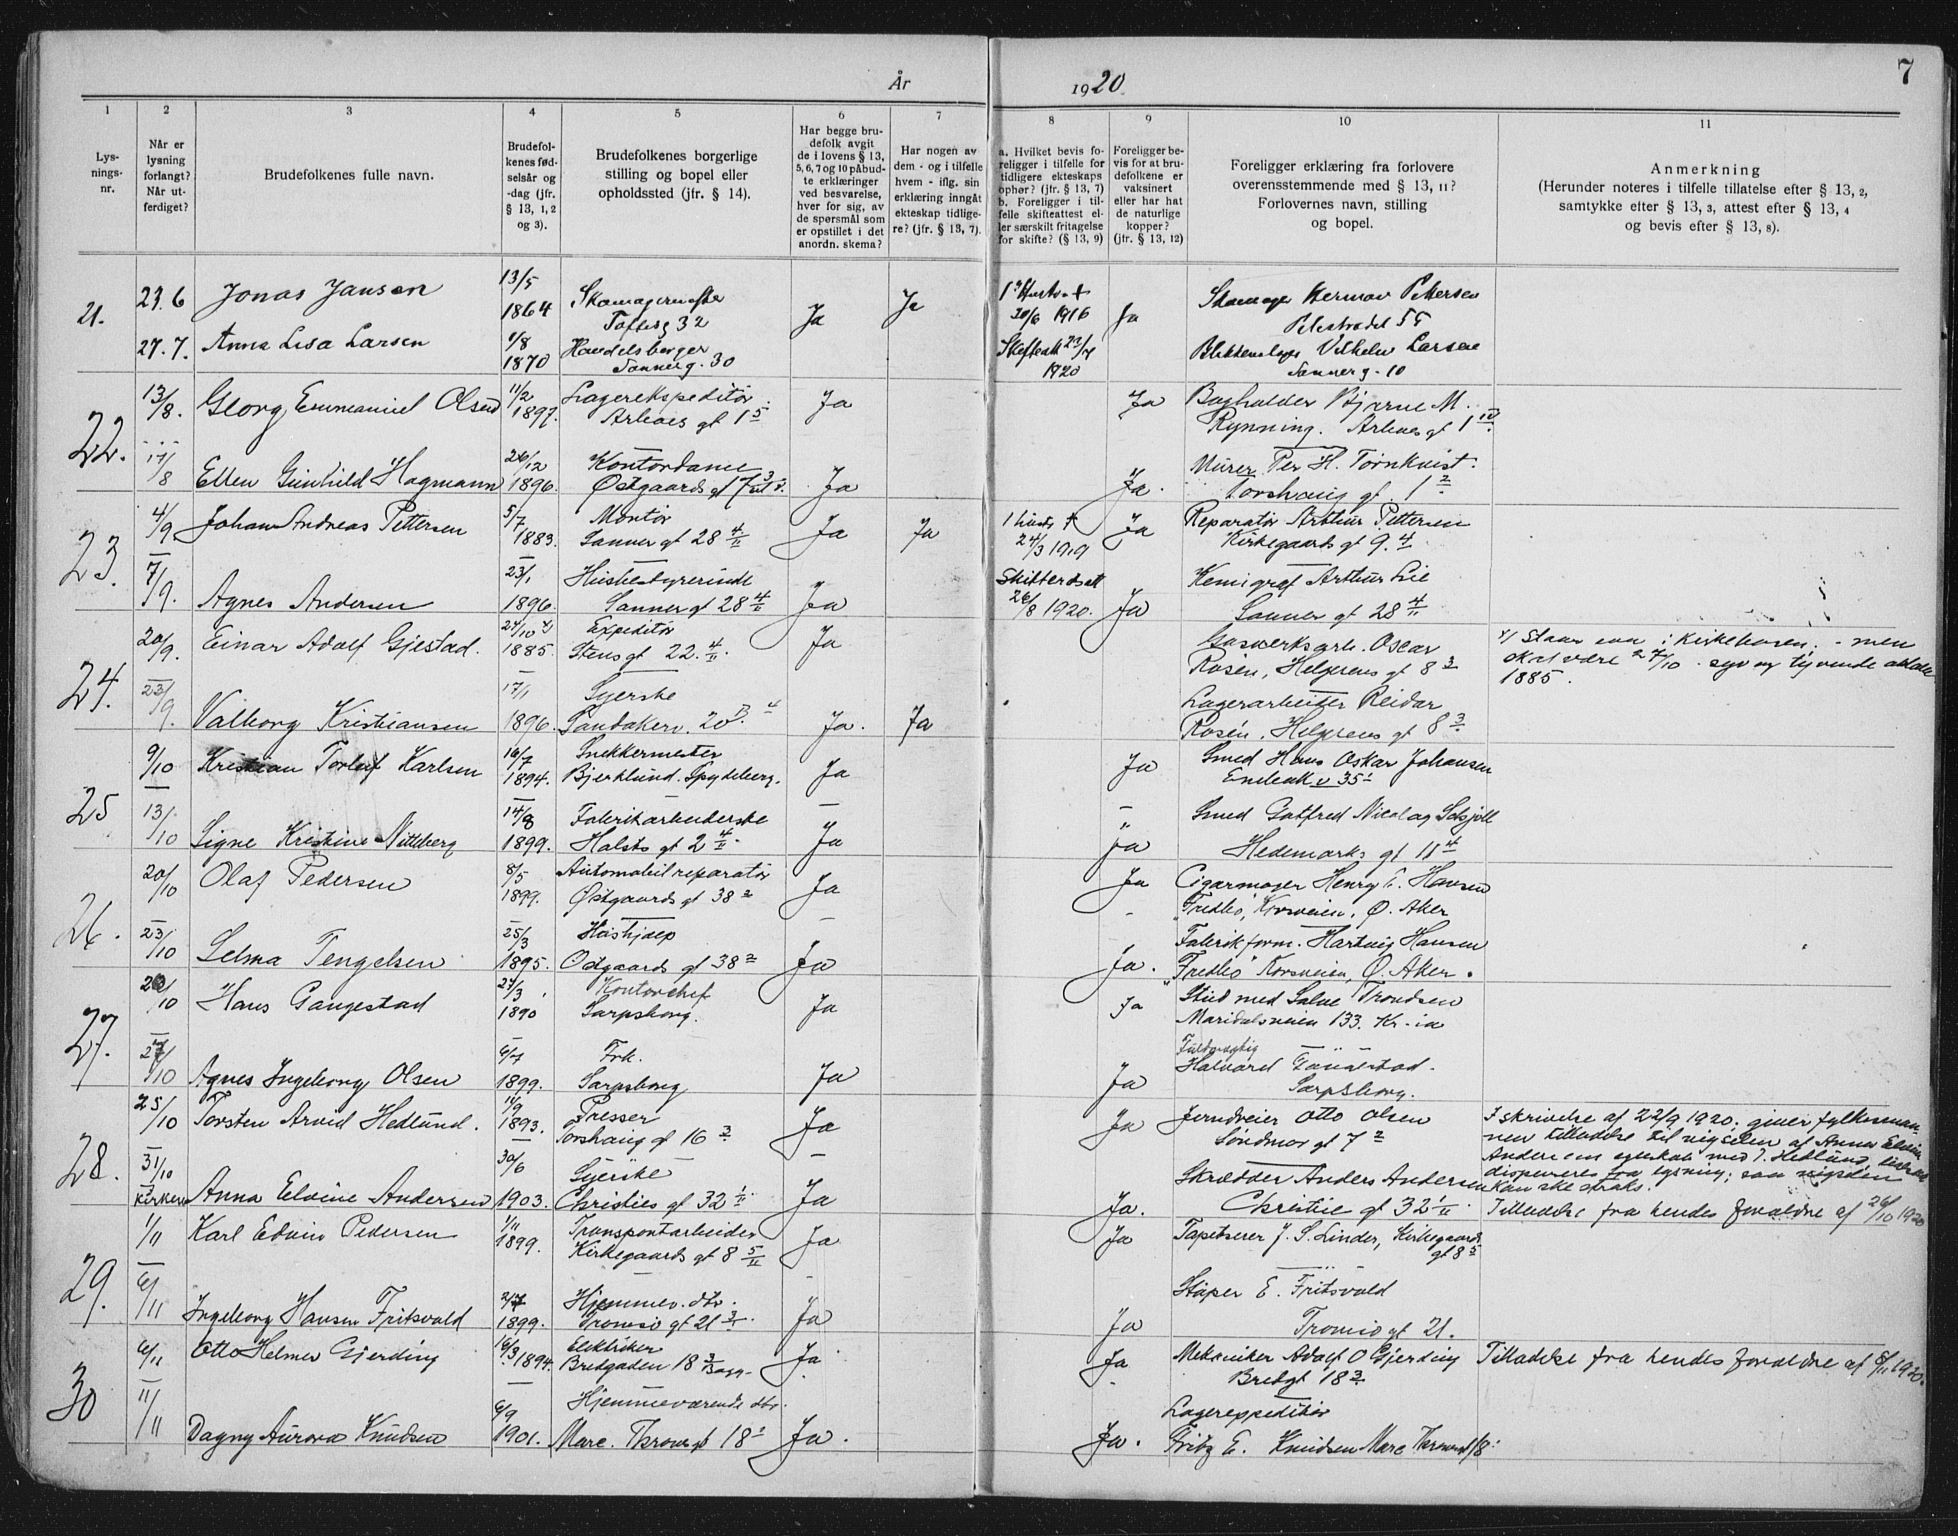 År 1920
7
1
2
3
4
5
6
7
8
9
10
11
Lys-
nings-
nr.
Når er
lysning
forlangt?
Når ut-
ferdiget?
Brudefolkenes fulle navn.
Brudefol-
kenes fød-
selsår og
-dag (jfr.
§ 13, 1, 2
og 3).
Brudefolkenes borgerlige
stilling og bopel eller
opholdssted (jfr. § 14).
Har begge bru-
defolk avgit
de i lovens § 13,
5, 6, 7 og 10 påbud-
te erklæringer
ved besvarelse,
hver for sig, av
de spørsmål som
er opstillet i det
anordn. skema?
Har nogen av
dem - og i tilfelle
hvem - iflg. sin
erklæring inngåt
ekteskap tidlige-
re? (jfr. § 13, 7).
a. Hvilket bevis fo-
religger i tilfelle for
tidligere ekteskaps
ophør? (jfr. § 13, 7)
b. Foreligger i til-
felle skifteattest el-
ler særskilt fritagelse
for skifte? (§ 13, 9)
Foreligger be-
vis for at bru-
defolkene er
vaksinert
eller har hat
de naturlige
kopper?
(jfr. § 13, 12)
Foreligger erklæring fra forlovere
overensstemmende med § 13, 11?
Forlovernes navn, stilling
og bopel.
Anmerkning
(Herunder noteres i tilfelle tillatelse efter § 13, 2,
samtykke efter § 13, 3, attest efter § 13, 4
og bevis efter § 13, 8).
21.
23.6 Jonas Jansen 13/5 1864 Ja Ja
Toftesg 32
20/6 1916 Ja
27.7. Anna Lisa Larsen 1/8 1870 Handelsborger
Sannerg. 30
1920
Vilhelm Larsen
Sannerg. 10
22.
13/8. Georg Emmanuel Olsen 11/2 1897. Lagerekspeditør Ja Ja Boghalder Bjarne M.
Rynning.
17/8 Ellen Gunhild Hagmann 26/12 1896. Kontordame Ja Ja. Murer Per H. Törnkvist.
Østgaards gt 17
Torshaug gt.
23.
4/9 Johan Andreas Pettersen 5/7 1883. Montør Ja Ja Ja Reparatør Arthur Pettersen
Sanner gt 28 4/II
24/3 1919
Kirkegaards gt 9. 4
7/9. Agnes Andersen 23/1 1896. Husbestyrerinde Ja Ja Kemigraf Arthur Lie
Sanner gt 28 4/II
26/8 1920.
Sanner gt 28 4/II
24.
20/9. Einar Adolf Gjestad. 27/10 1885. Expeditør Ja
Stens gt 22. 4/II.
Oscar
Rosén, Helgesens gt 8 3
men
skal være 27/10 - syv og tyvende
1885.
23/9. Valborg Kristiansen 17/1 1896. Syerske Ja. Ja Lagerarbeider Reidar
Sandakerv. 20
Rosén, Helgesens gt 8 3
25
9/10 Kristian Torleif Karlsen 16/7 1894. Snekkermester Ja Ja Smed Hans Oskar Johansen
Bjerklund. Spydeberg.
13/10 Signe Kristine Nitteberg 14/8 1899. Fabrikarbeiderske Ja Ja Smed Gotfred Nicolay
gt 2 4/II.
Hedemarks gt 11 4
26.
20/10 Olaf Pedersen 8/5 1899. Automobilreparatør Ja Ja Cigarmager Henry E. Hansen
Østgaards gt 38 2
"Fredbo", Korsveien, Ø. Aker
23/10 Selma Tengelsen 25/3 1895. Hushjælp Ja Ja. Fabrikform. Hartvig Hansen
Østgaards gt 38 2
"Fredbo" Korsveien, Ø. Aker.
27.
20/10 Hans Gangestad 27/3 1890 Kontorchef Ja Ja Stud med Salve Trondsen
Sarpsborg.
Maridalsveien 133. Kr-ia
27/10 Agnes Ingeborg Olsen 6/7 1899. Frk. Ja Ja Fuldmægtig
Halvard Gangestad.
Sarpsborg
Sarpsborg.
28.
25/10 Torsten Arvid Hedlund. 11/9 1893. Presser Ja Ja Jerndreier Otto Olsen
Torshaug gt 16 3
Søndmør gt 7 2
I skrivelse af 22/9 1920 giver fylkesman-
nen tilladelse til vigselen af Anna Elvine
Andersens egteskab med T. Hedlund,
dispenseres fra lysning; saa vigselen
kan ske straks.
31/10
kirken Anna Elvine Andersen 30/6 1903. Syerske Ja Ja. Skrædder Anders Andersen
Christies gt 32 1/II
Christie gt 32 1/II
Tilladelse fra hendes forældre af 26/10 1920
29.
1/11 Karl Edvin Pedersen 1/11 1899. Transportarbeider Ja Ja Tapetserer J. S. Linder, Kirkegaards
gt 8 5
Kirkegaards gt 8 5/II
6/11 Ingeborg Hansen Fritsvold 1899. Hjemmev. dtr. Ja Ja Støper E. Fritsvold
Tromsø gt 21 3
Tromsø gt 21.
30
6/11 Otto Helmer Gjerding 16/3 1894. Elektriker Ja. Ja Mekaniker Adolf O Gjerding
Bredgaden 18 3
Bredgt 18 3
Tilladelse fra hendes forældre af 8/11 1920.
11/11 Dagny Aurora Knudsen 6/9 1901. Hjemmeværende dtr. Ja. Ja. Lagerexpeditør
Marc. Thranes gt 18
Fritz E. Knudsen Marc Thranes gt 18